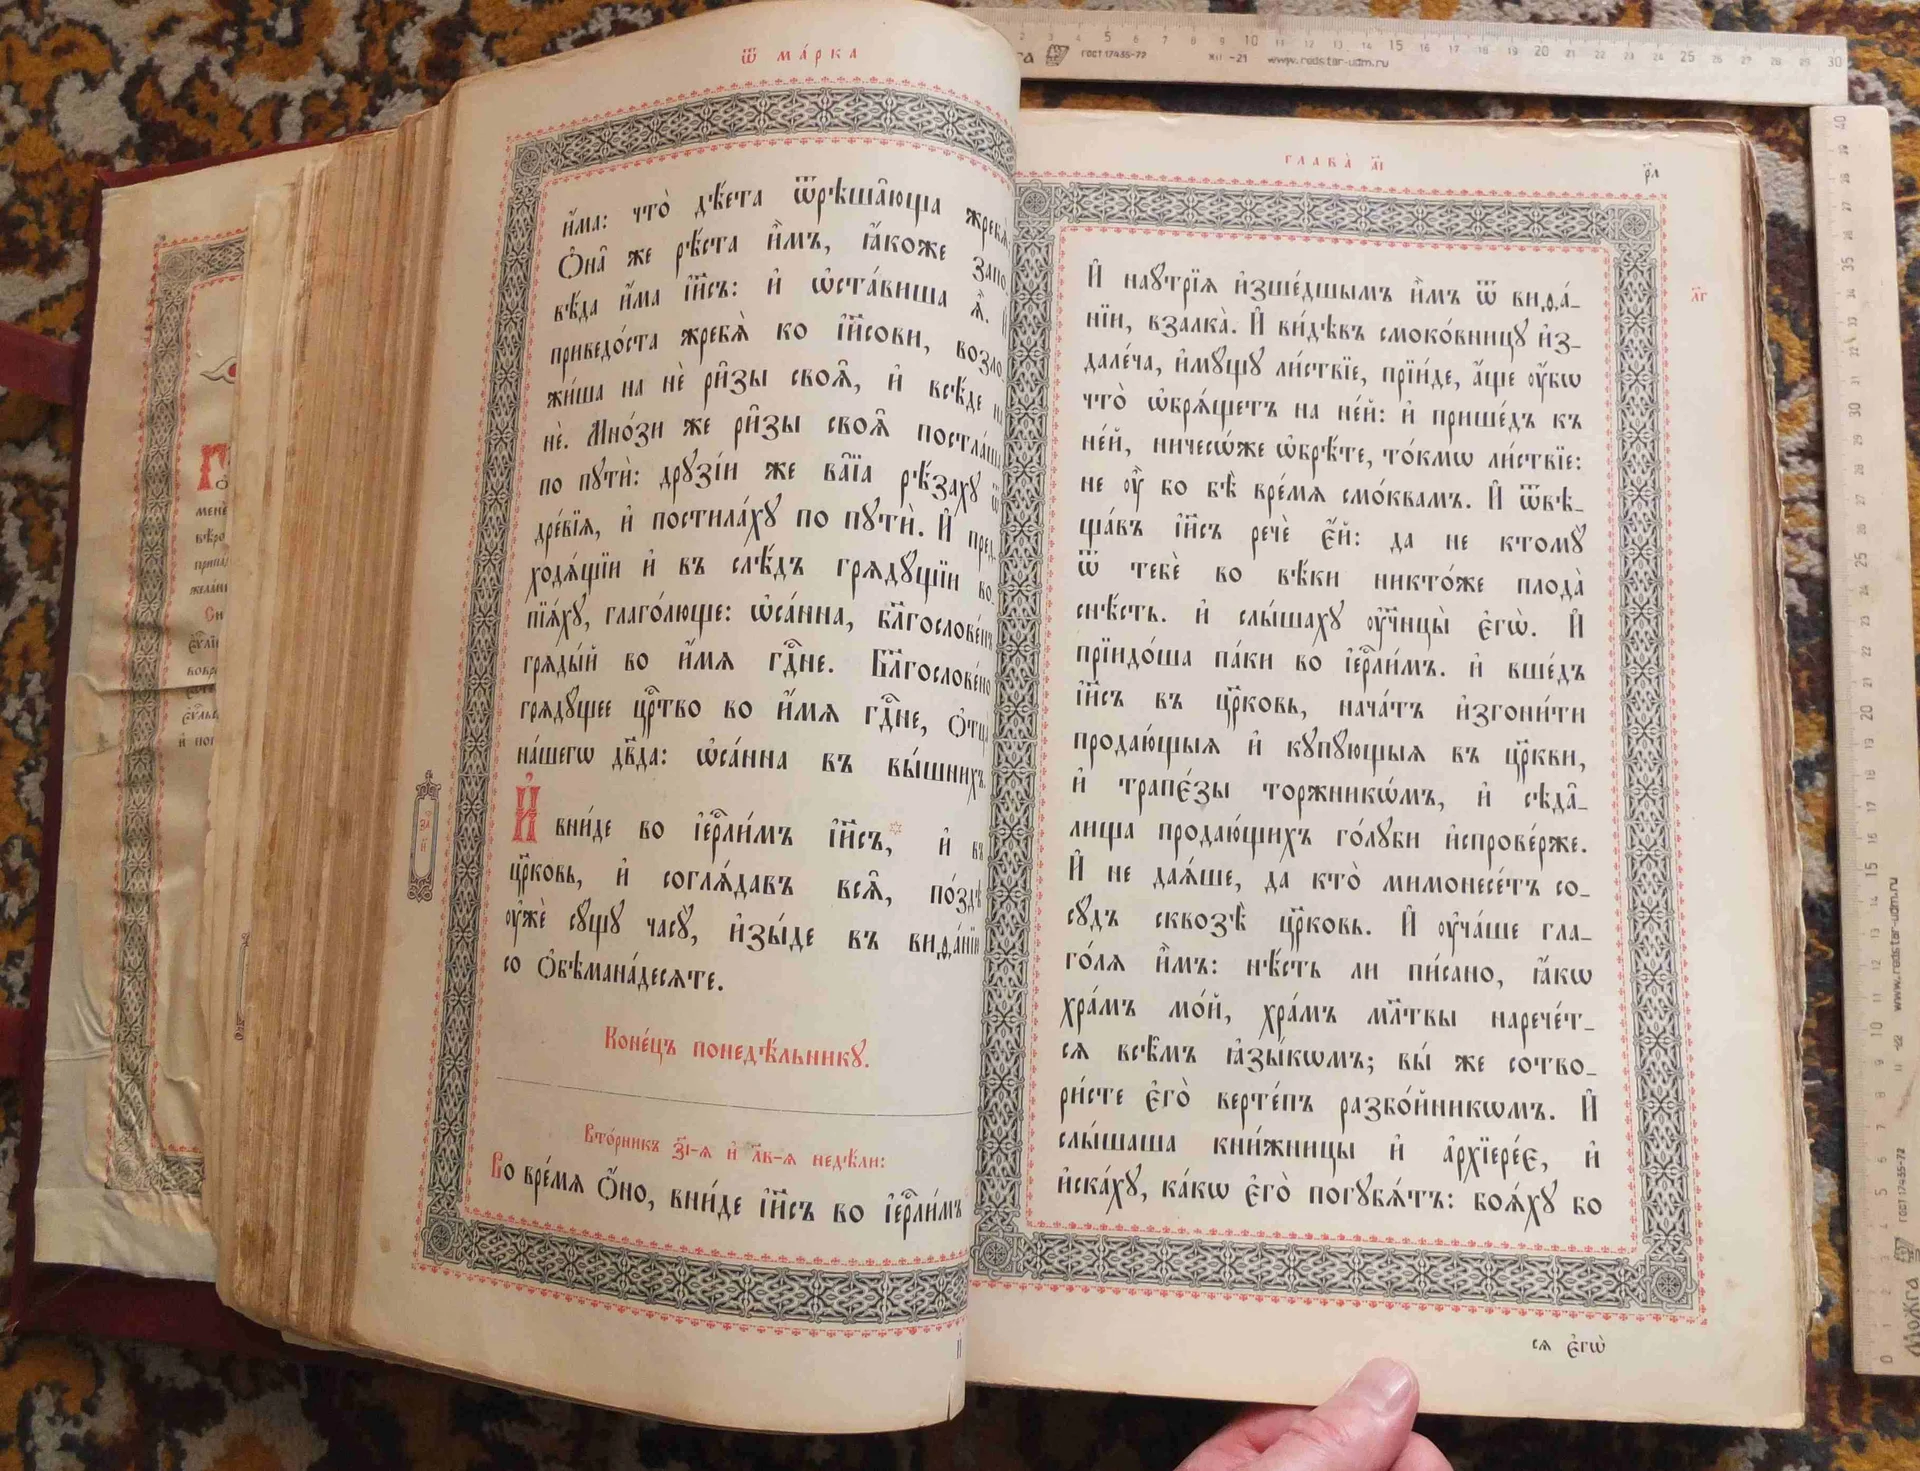 Ѿ МА́РКА
и҆́ма: что̀ дѣ́ета ѿрѣша̑юща жребѧ̀;
Ѻ҆на̑ же рѣ́ста и҆̀мъ, ꙗ҆́коже запо
вѣ́да и҆́ма і҆и҃съ: и҆ ѡ҆ста́виша ѧ҆̀. И҆
приведо́ста жребѧ̀ ко і҆и҃сови, возло
жи́ша на нѐ ри̑зы своѧ̑, и҆ всѣ́де на
нѐ. Мно́зи же ри̑зы своѧ̑ постла́ша
по пути̑: друзі́и же ва̑їа рѣ́заху ѿ
дре́вїѧ, и҆ постила́ху по пути̑. И҆̀ пред_
ходѧ́щїи и҆ въ слѣ́дъ грѧду́щїи во_
пїѧ́ху, глаго́люще: ѡ҆са́нна, бл҃гослове́нъ
грѧды́й во и҆́мѧ гдⷭ҇не. Бл҃гослове́но
грѧду́щее црⷭ҇тво во и҆́мѧ гдⷭ҇не, ѻ҆тца̀
на́шегѡ дв҃да: ѡ҆са́нна въ вы́шнихъ.
И҆ вни́де во і҆ерⷭ҇ли́мъ і҆и҃съ, и҆ въ
цр҃ковь, и҆ соглѧ́давъ всѧ̑, по́здѣ
ᲂу҆жѐ су́щу часу̀, и҆зы́де въ виѳа́нїю
со ѻ҆бѣмана́десѧте.
Коне́цъ понедѣ́льнику.
Вто́рникъ з҃і-ѧ и҆ л҃в-ѧ недѣ́ли:
Во вре́мѧ ѻ҆́но, вни́де і҆и҃съ во і҆ерⷭ҇ли́мъ
за
п҃
ГЛАВА̀ а҃і
р҃л
И҆̀ наꙋ́трїѧ и҆зше́дшымъ и҆̀мъ ѿ виѳа́_
нїи, взалка̀. И҆̀ ви́дѣвъ смоко́вницу и҆з_
дале́ча, и҆му́щу ли́ствїе, прїи́де, а҆́ще ᲂу҆́бѡ
что̀ ѡ҆брѧ́щетъ на не́й: и҆ прише́дъ къ
не́й, ничесѡ́же ѡ҆брѣ́те, то́кмѡ ли́ствїе:
не ᲂу҆̀ бо бѣ̀ вре́мѧ смо́квамъ. И҆̀ ѿвѣ_
ща́въ і҆и҃съ речѐ є҆́й: да не ктому̀
ѿ тебѐ во вѣ́ки никто́же плода̀
снѣ́сть. и҆ слы́шаху ᲂу҆ч҃нцы̀ є҆гѡ̀. И҆̀
прїидо́ша па́ки во і҆ерⷭ҇ли́мъ. и҆ вше́дъ
і҆и҃съ въ цр҃ковь, нача́тъ и҆згони́ти
продаю́щыѧ и҆ купу́ющыѧ въ цр҃кви,
и҆ трапє́зы торжникѡ́мъ, и҆ сѣда̑_
лища продаю́щихъ го́луби и҆спрове́рже.
И҆̀ не даѧ́ше, да кто̀ мимонесе́тъ со_
су́дъ сквозѣ̀ цр҃ковь. И҆̀ ᲂу҆ча́ше гла_
го́лѧ и҆̀мъ: нѣ́сть ли пи́сано, ꙗ҆́кѡ
хра́мъ мо́й, хра́мъ мл҃твы нарече́т_
сѧ всѣ̑мъ ꙗ҆зы́кѡмъ; вы́ же сотво_
ри́сте є҆го̀ верте́пъ разбо́йникѡмъ. И҆̀
слы́шаша кни́жницы и҆ а҆рхїере́є, и҆
и҆ска́ху, ка́кѡ є҆го̀ погубѧ́тъ: боѧ́ху бо
л҃г
сѧ є҆гѡ̀
ГОСТ 17435-72
www.redstar-udm.ru
ГОСТ 17435-72
www.redstar-udm.ru
Можга